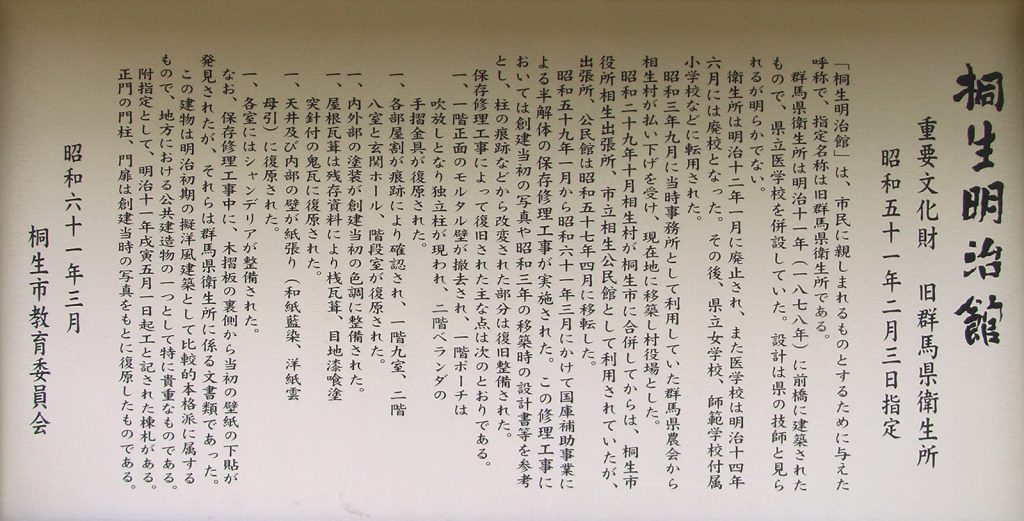 桐生明治館
重要文化財　旧群馬県衛生所
昭和五十一年二月三日指定
「桐生明治館」は、市民に親しまれるものとするために与えた
呼称で、指定名称は旧群馬県衛生所である。
群馬県衛生所は明治十一年（一八七八年）に前橋に建築された
もので、県立医学校を併設していた。設計は県の技師と見ら
れるが明らかでない。
衛生所は明治十二年一月に廃止され、また医学校は明治十四年
六月には廃校となった。その後、県立女学校、師範学校付属
小学校などに転用された。
昭和三年九月に当時事務所として利用していた群馬県農会から
相生村が払い下げを受け、現在地に移築し村役場とした。
昭和二十九年十月相生村が桐生市に合併してからは、桐生市
役所相生出張所、市立相生公民館として利用されていたが、
出張所、公民館は昭和五十七年四月に移転した。
昭和五十九年一月から昭和六十一年三月にかけて国庫補助事業に
よる半解体の保存修理工事が実施された。この修理工事に
おいては創建当初の写真や昭和三年の移築時の設計書等を参考
とし、柱の痕跡などから改変された部分は復旧整備された。
保存修理工事によって復旧された主な点は次のとおりである。
一、一階正面のモルタル壁が撤去され、一階ポーチは
吹放しとなり独立柱が現われ、二階ベランダの
手摺金具が復原された。
一、各部屋割が痕跡により確認され、一階九室、二階
八室と玄関ホール、階段室が復原された。
一、内外部の塗装が創建当初の色調に整備された。
一、屋根瓦葺は残存資料により桟瓦葺、目地漆喰塗
突針付の鬼瓦に復原された。
一、天井及び内部の壁が紙張り（和紙藍染、洋紙雲
母引）に復原された。
一、各室にはシャンデリアが整備された。
なお、保存修理工事中に、木摺板の裏側から当初の壁紙の下貼が
発見されたが、それらは群馬県衛生所に係る文書類であった。
この建物は明治初期の擬洋風建築として比較的本格派に属する
もので、地方における公共建造物の一つとして特に貴重なものである。
附指定として、明治十一年戊寅五月一日起工と記された棟札がある。
正門の門柱、門扉は創建当時の写真をもとに復原したものである。
昭和六十一年三月
桐生市教育委員会